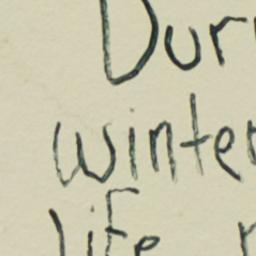 Dur
winter
life